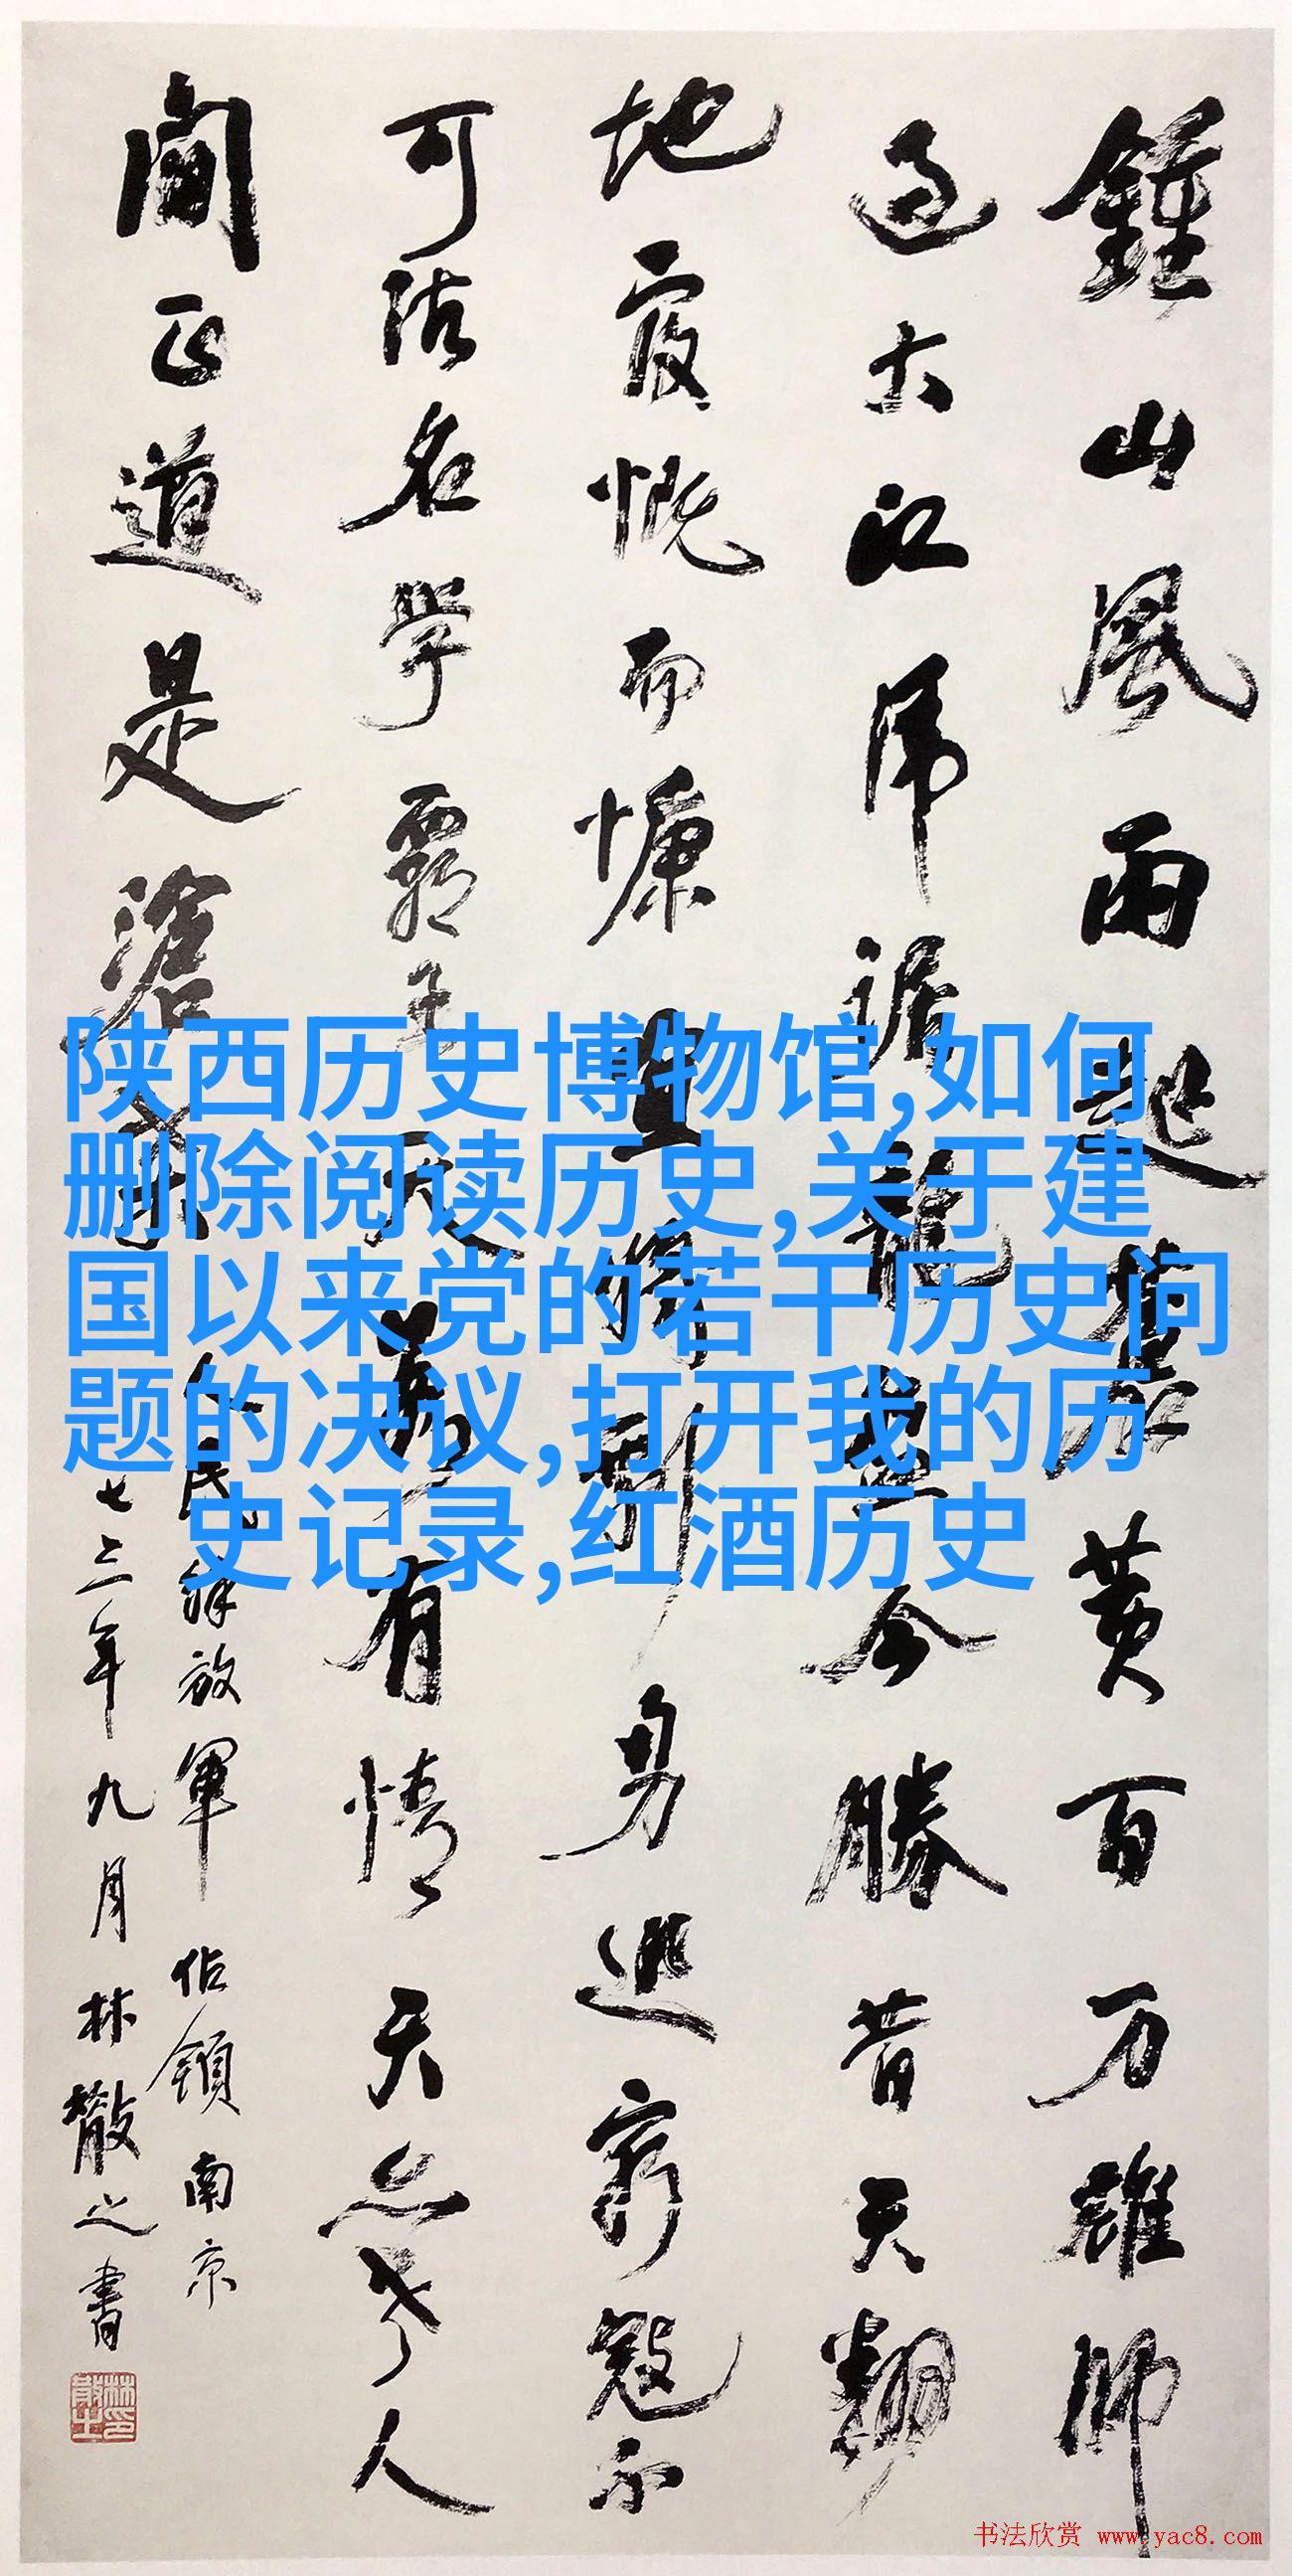 鍾山風雨起蒼黄百万雄師
过大江虎踞龍盤今勝昔天翻
地覆慨而慷宜將剩勇追窮寇不
可沽名學霸王天若有情天亦老人
间正道是滄桑
人民解放軍佔領南京
七三年九月林散之書
林散之印
陕西历史博物馆,如何
删除阅读历史,关于建
国以来党的若干历史问
题的决议,打开我的历
史记录,红酒历史
书法欣赏 www.yac8.com